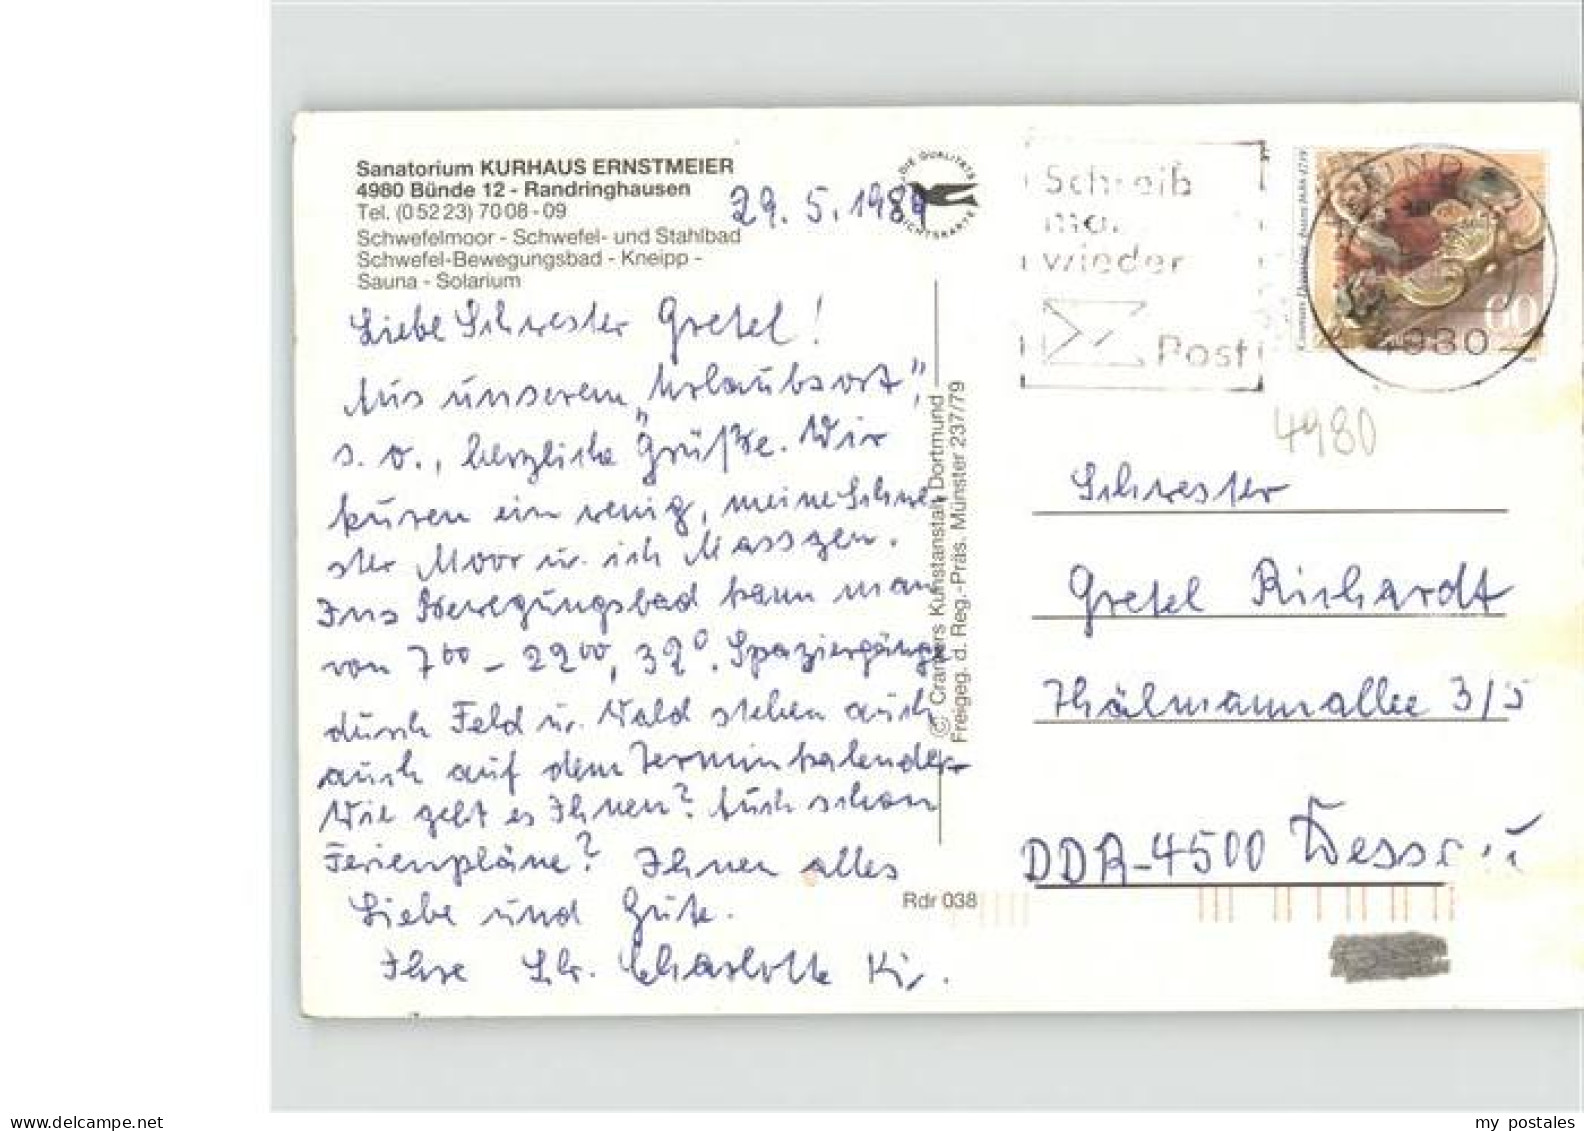 Sanatorium KURHAUS ERNSTMEIER
4980 Bünde 12 - Randringhausen
Tel. (0 52 23) 70 08 - 09
Schwefelmoor - Schwefel- und Stahlbad
Schwefel-Bewegungsbad - Kneipp -
Sauna - Solarium
29. 5. 1989
DIE QUALITÄTS
ANSICHTSKARTE
Liebe Schwester Gretel!
Aus unserem „Urlaubsort",
s. o., herzliche Grüße. Wir
kuren ein wenig, meine Schwe-
ster Moor u. ich Massgen.
Ins Bewegungsbad kann man
von 7⁰⁰ – 22⁰⁰, 32⁰. Spaziergänge
durch Feld u. Wald stehen auch
auch auf dem Terminkalender
Wie geht es Ihnen? Auch schon
Ferienpläne? Ihnen alles
Liebe und Gute.
Ihre Schr. Charlotte
© Cramers Kunstanstalt Dortmund
Freigeg. d. Reg.-Präs. Münster 237/79
Rdr 038
Schreib
mal
wieder
Post
60
4980
4980
Schwester
Gretel Richardt
Thälmannallee 3/5
DDR-4500 Dessau
www.delcampe.net
my_postales